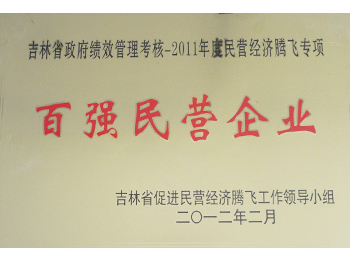 吉林省政府绩效管理考核-2011年度民营经济腾飞专项
百强民营企业
吉林省促进民营经济腾飞工作领导小组
二〇一二年二月